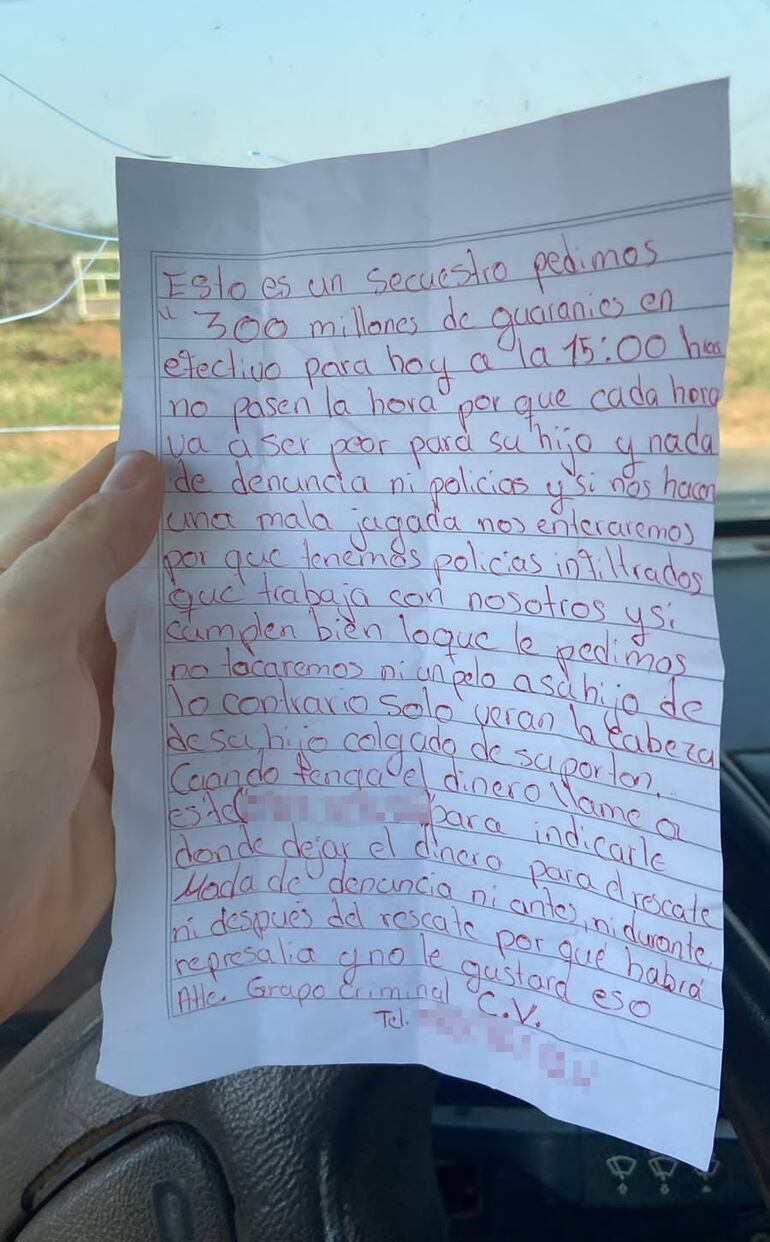 Esto es un secuestro pedimos
" 300 millones de guaranies en
efectivo para hoy a la 15:00 hras
no pasen la hora por que cada hora
va a ser peor para su hijo y nada
de denuncia ni policias y si nos hacen
una mala jugada nos enteraremos
por que tenemos policias infiltrados
que trabaja con nosotros y si
cumplen bien loque le pedimos
no tocaremos ni unpelo asuhijo de
lo contrario solo veran la cabeza
desu hijo colgado de suporton.
Cuando tenga el dinero llame a
este para indicarle
donde dejar el dinero para el rescate
Nada de denuncia ni antes, ni durante,
ni después del rescate por que habrá
represalia y no le gustará eso
Atte. Grupo Criminal C.V.
Tel.